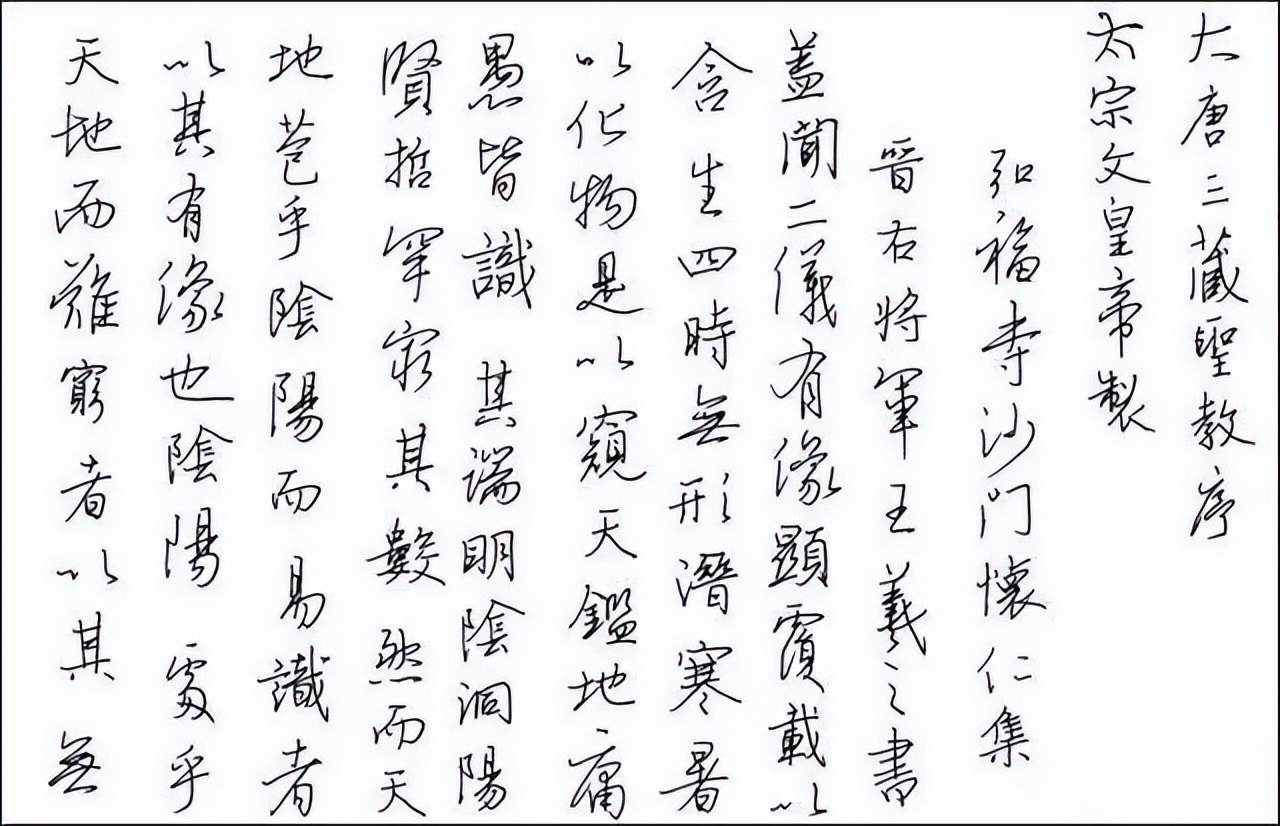 大唐三藏聖教序
太宗文皇帝製
弘福寺沙門懷仁集
晉右將軍王羲之書
蓋聞二儀有像顯覆載以
含生四時無形潛寒暑
以化物是以窺天鑑地庸
愚皆識其端明陰洞陽
賢哲罕窮其數然而天
地苞乎陰陽而易識者
以其有像也陰陽處乎
天地而難窮者以其無